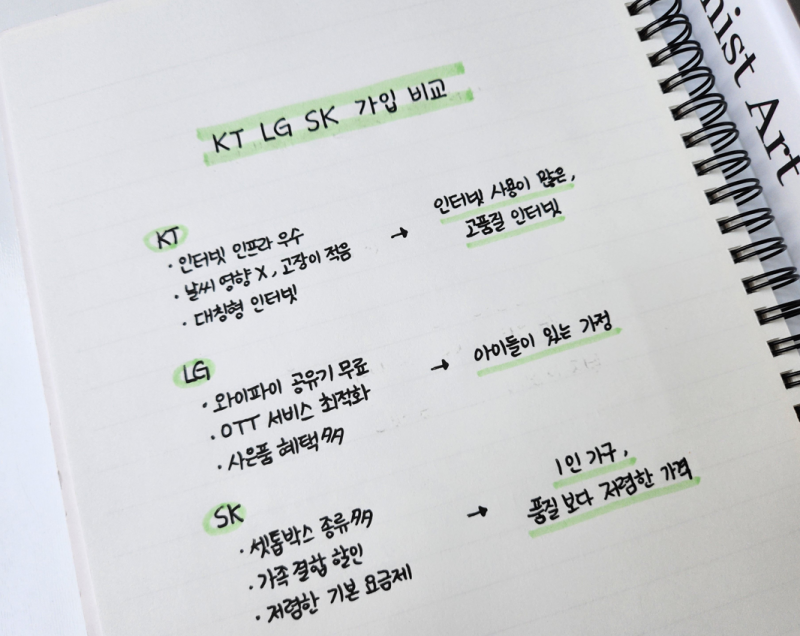 KT LG SK 가입 비교
KT
· 인터넷 인프라 우수
· 날씨 영향 X, 고장이 적음
· 대칭형 인터넷
→ 인터넷 사용이 많은,
고품질 인터넷
LG
· 와이파이 공유기 무료
· OTT 서비스 최적화
· 사은품 혜택 多
→ 아이들이 있는 가정
SK
· 셋톱박스 종류 多
· 가족 결합 할인
· 저렴한 기본 요금제
→ 1인 가구,
품질보다 저렴한 가격
nist Art